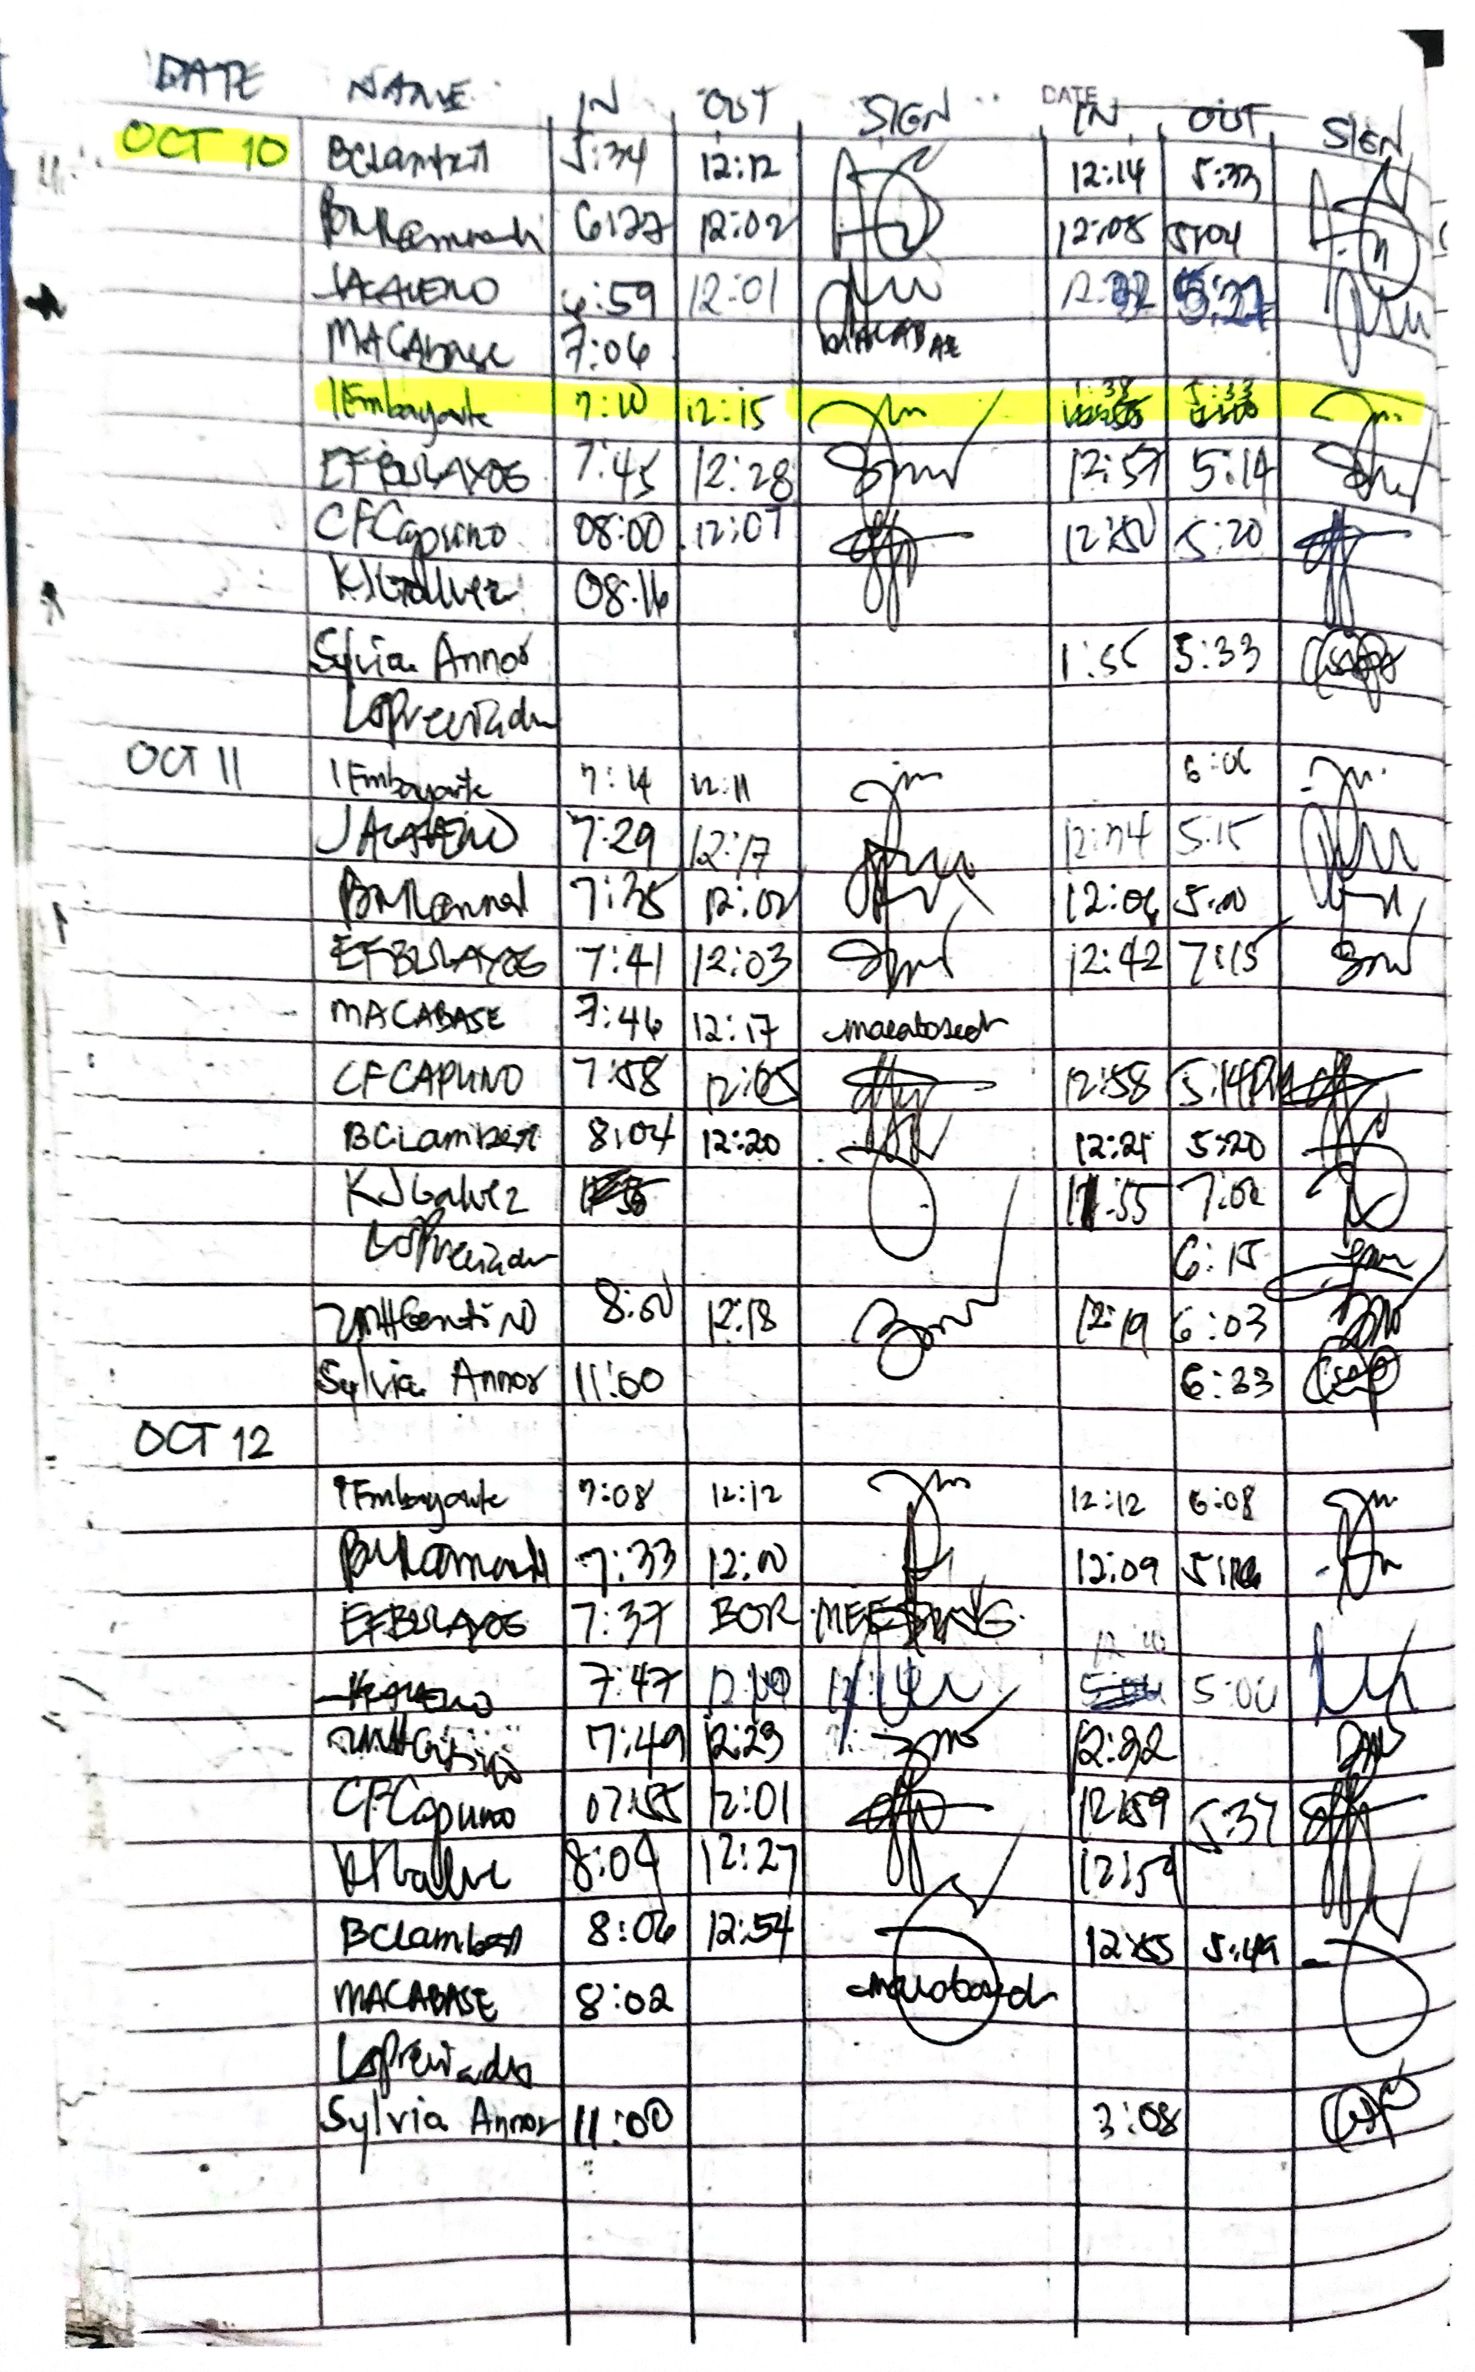 DATE NAME IN OUT SIGN DATE IN OUT SIGN
OCT 10 BCLambert 5:34 12:12 12:14 5:33
6:27 12:02 12:08 5:04
JACALENO 6:59 12:01
MACAbase 7:06 MACABASE
IEmbayarte 7:10 12:15 1:38 5:33
EFBULAYOG 7:45 12:28 12:57 5:14
CFCapuno 08:00 12:07 12:50 5:20
KJGallvez 08:16
Sylvia Annor 1:55 5:33
LSPreciado
OCT 11 IEmbayarte 7:14 12:11 6:06
JACALENO 7:29 12:17 5:15
7:35 12:02 12:06 5:00
EFBULAYOG 7:41 12:03 12:42 7:15
MACABASE 7:46 12:17 macabased
CFCAPUNO 7:58 12:05 12:58 5:14PM
BCLambert 8:04 12:20 12:21 5:20
KJGalvez :55 7:02
LSPreciado 6:15
8:00 12:18 12:19 6:03
Sylvia Annor 11:00 6:33
OCT 12
IEmbayarte 7:08 12:12 12:12 6:08
7:33 12:00 12:09
EFBULAYOG 7:37 BOR MEETING
7:47 5:00
7:49 12:23 12:32
CFCapuno 07:55 12:01 12:59 5:37
8:04 12:27 12:59
BCLambert 8:06 12:54 12:55 5:49
MACABASE 8:02 macabased
LSPreciado
Sylvia Annor 11:00 3:08